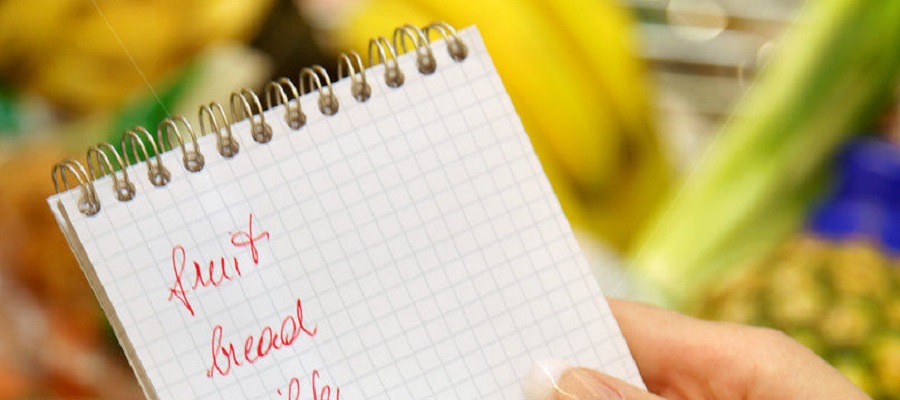 fruit
bread